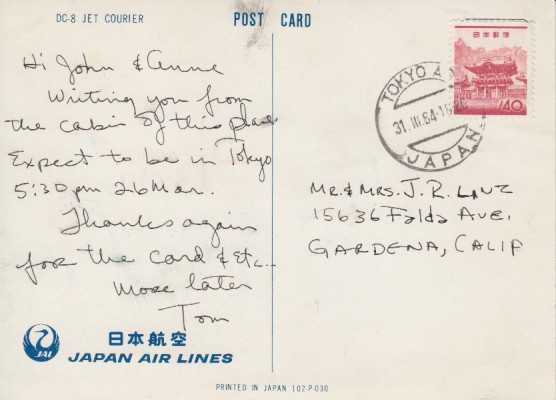 DC-8 JET COURIER
POST CARD
Hi John & Anne
Writing you from
the cabin of this plane
Expect to be in Tokyo
5:30 pm 26 Mar.
Thanks again
for the card & Etc..
More later
Tom
日本郵便
40
TOKYO
31. III. 64
JAPAN
MR. & MRS. J. R. LANZ
15636 Falda Ave.
GARDENA, CALIF
JAL
日本航空
JAPAN AIR LINES
PRINTED IN JAPAN 102-P-030